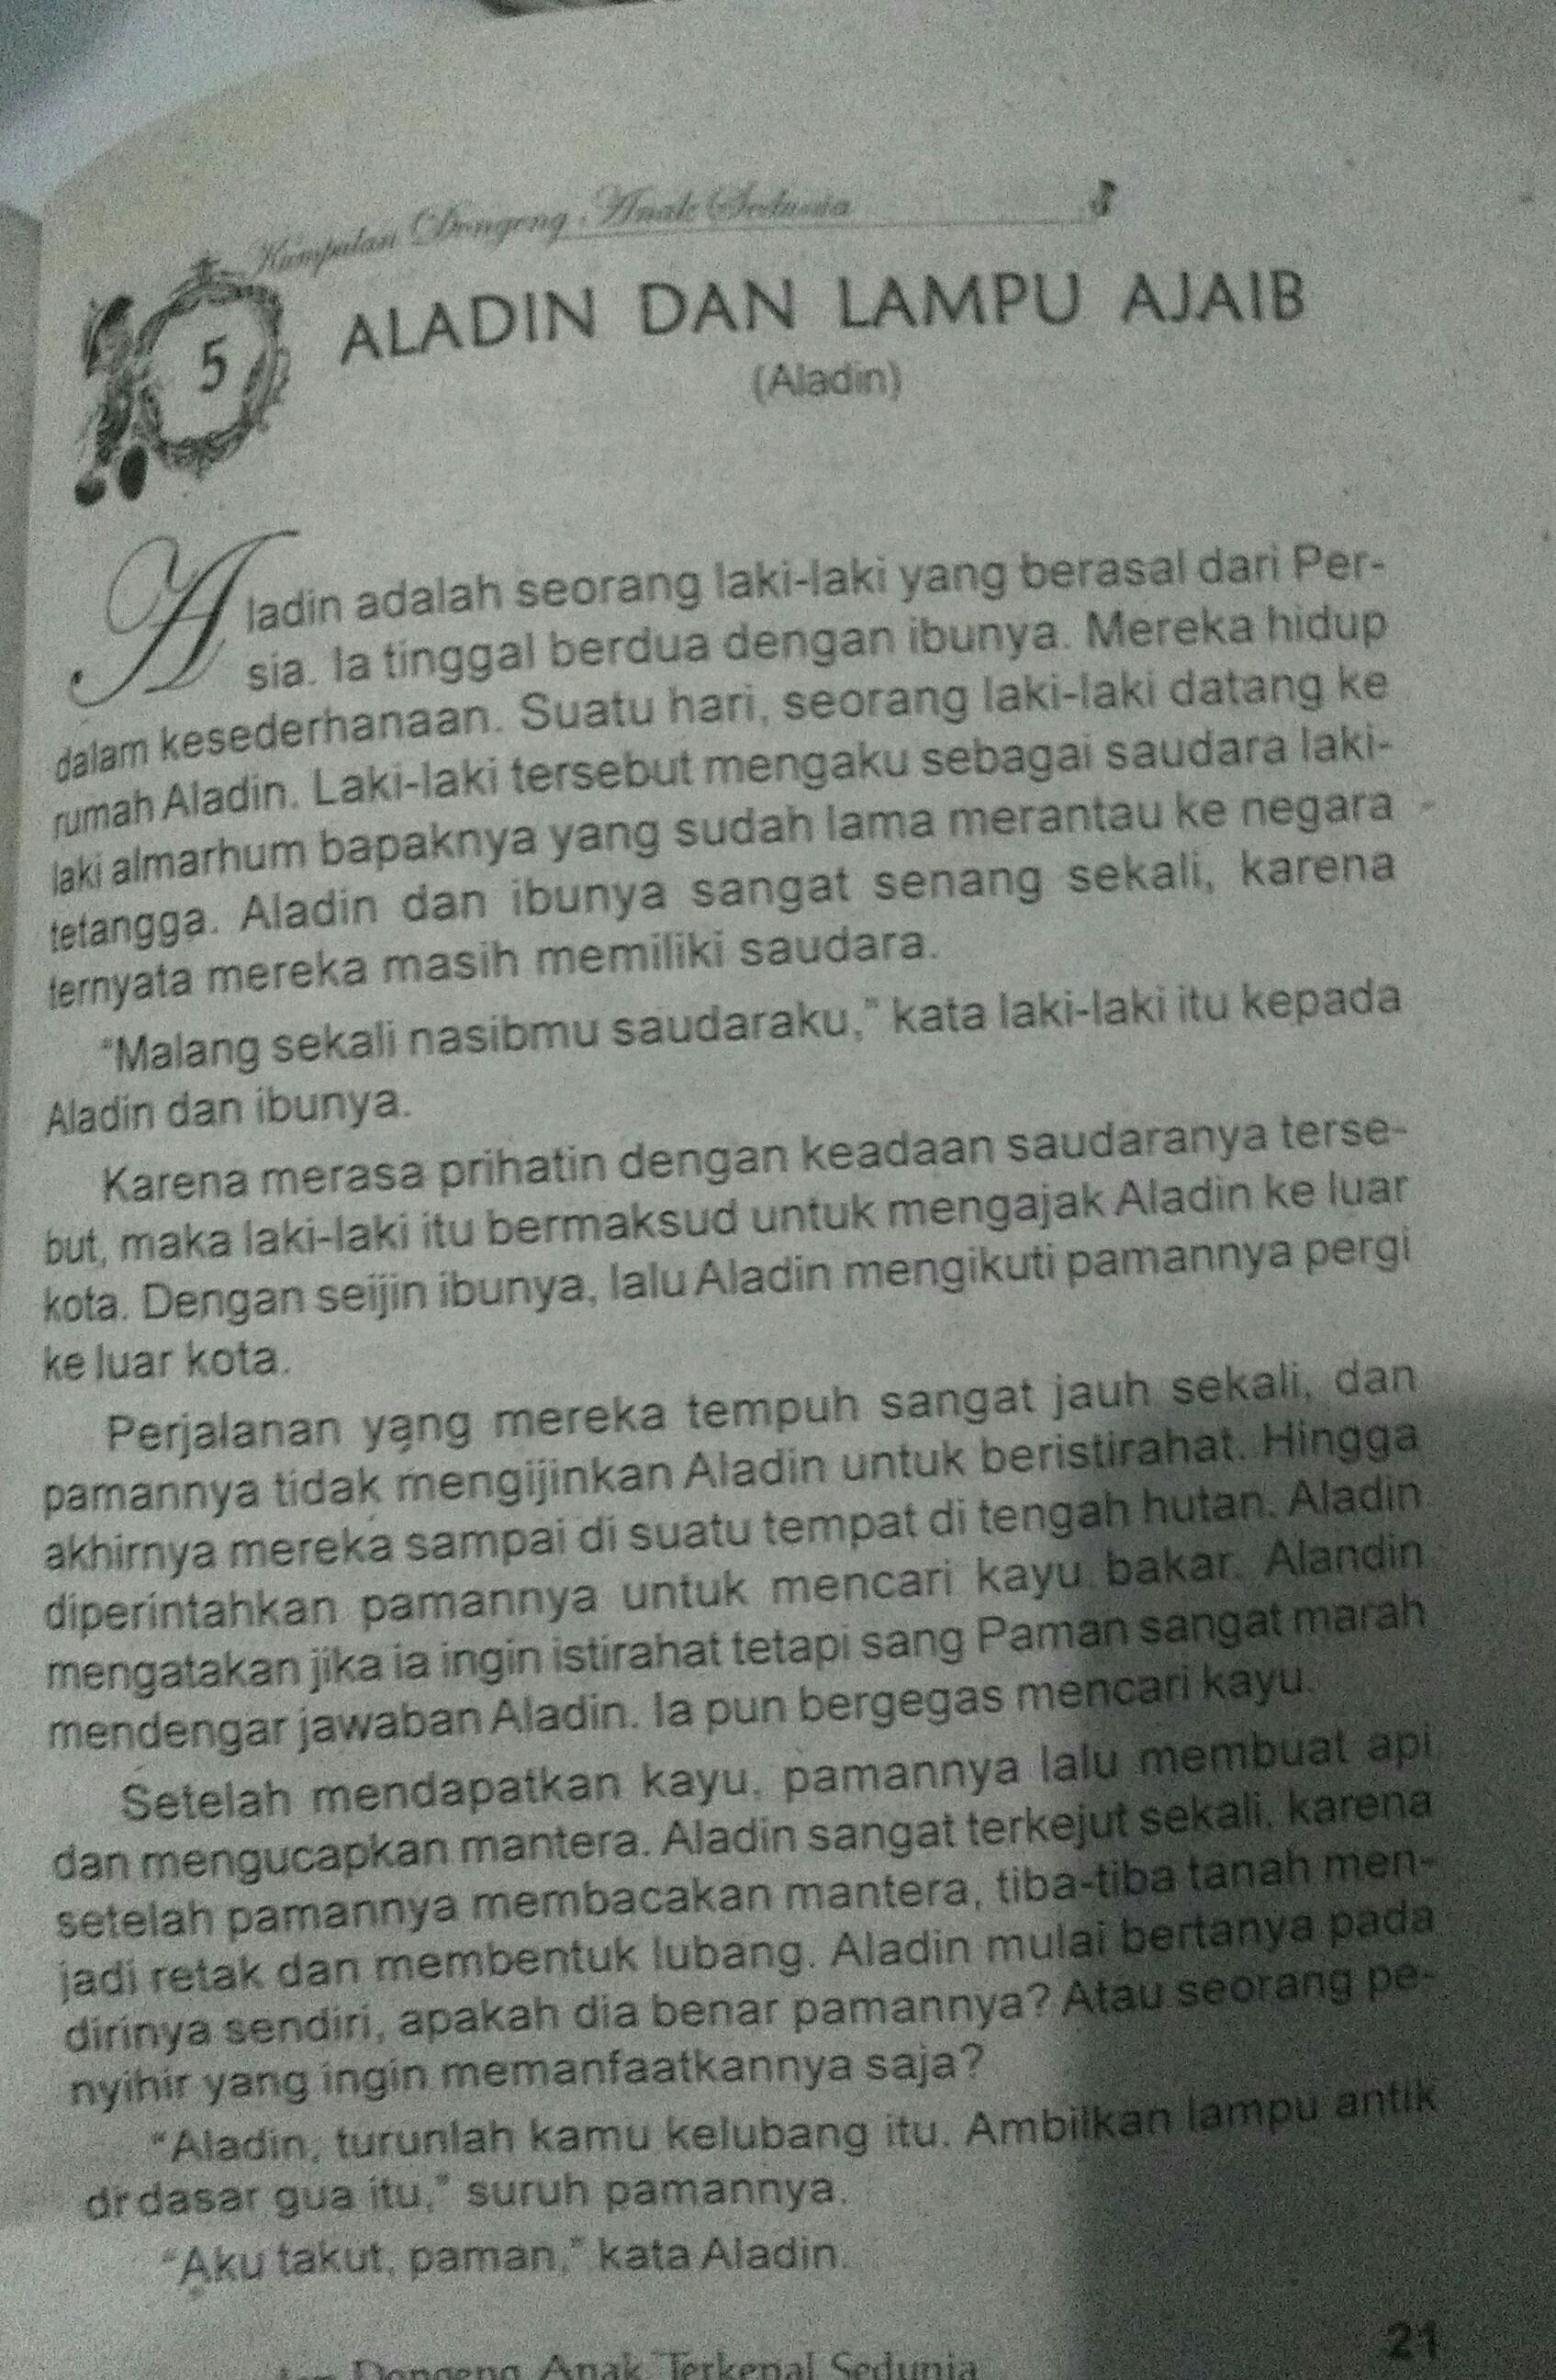 Kumpulan Dongeng Anak Sedunia
5
ALADIN DAN LAMPU AJAIB
(Aladin)
Aladin adalah seorang laki-laki yang berasal dari Per-
sia. Ia tinggal berdua dengan ibunya. Mereka hidup
dalam kesederhanaan. Suatu hari, seorang laki-laki datang ke
rumah Aladin. Laki-laki tersebut mengaku sebagai saudara laki-
laki almarhum bapaknya yang sudah lama merantau ke negara
tetangga. Aladin dan ibunya sangat senang sekali, karena
ternyata mereka masih memiliki saudara.
"Malang sekali nasibmu saudaraku," kata laki-laki itu kepada
Aladin dan ibunya.
Karena merasa prihatin dengan keadaan saudaranya terse-
but, maka laki-laki itu bermaksud untuk mengajak Aladin ke luar
kota. Dengan seijin ibunya, lalu Aladin mengikuti pamannya pergi
ke luar kota.
Perjalanan yang mereka tempuh sangat jauh sekali, dan
pamannya tidak mengijinkan Aladin untuk beristirahat. Hingga
akhirnya mereka sampai di suatu tempat di tengah hutan. Aladin
diperintahkan pamannya untuk mencari kayu bakar. Alandin
mengatakan jika ia ingin istirahat tetapi sang Paman sangat marah
mendengar jawaban Aladin. Ia pun bergegas mencari kayu.
Setelah mendapatkan kayu, pamannya lalu membuat api
dan mengucapkan mantera. Aladin sangat terkejut sekali, karena
setelah pamannya membacakan mantera, tiba-tiba tanah men-
jadi retak dan membentuk lubang. Aladin mulai bertanya pada
dirinya sendiri, apakah dia benar pamannya? Atau seorang pe-
nyihir yang ingin memanfaatkannya saja?
"Aladin, turunlah kamu kelubang itu. Ambilkan lampu antik
di dasar gua itu," suruh pamannya.
"Aku takut, paman," kata Aladin.
21
Dongeng Anak Terkenal Sedunia